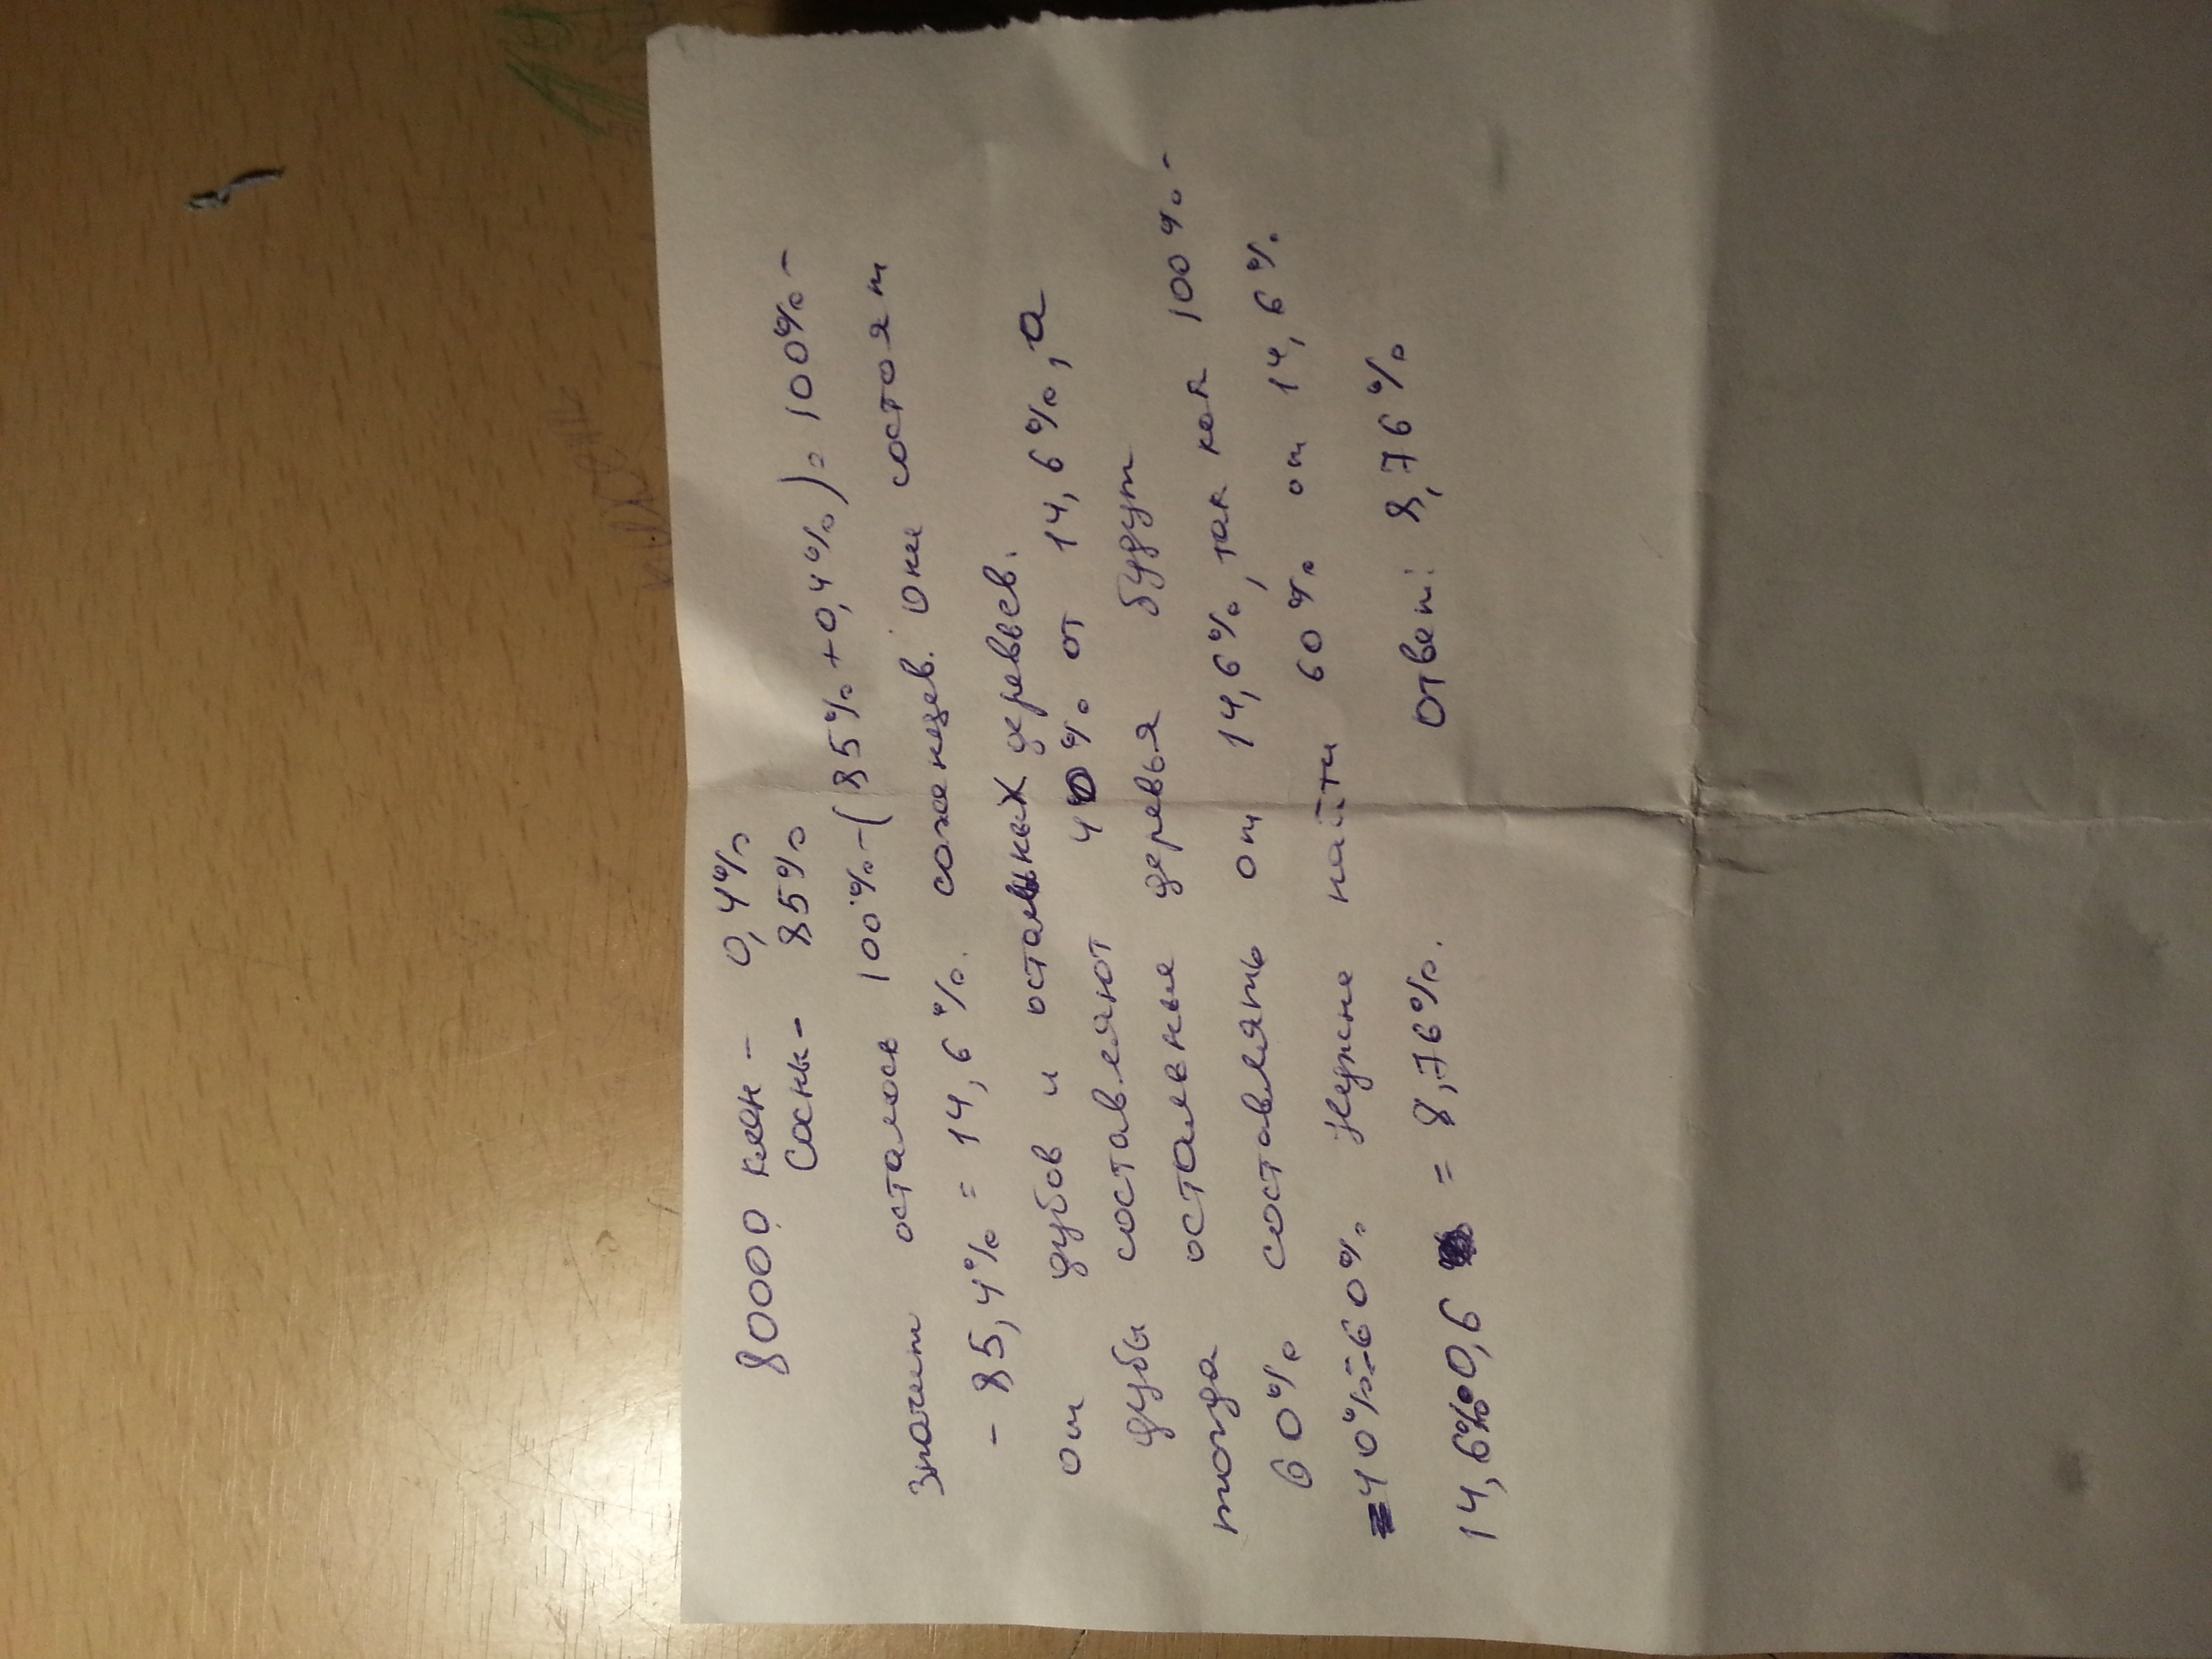 80000 клен - 0,4%
Сосны - 85%
значит осталось 100% - (85% + 0,4%) = 100% -
- 85,4% = 14,6%. саженцев. Они состоят
от дубов и остальных деревьев.
дубы составляют 40% от 14,6%, а
тогда остальные деревья будут
60% составлять от 14,6%, так как 100% -
- 40% = 60%. Нужно найти 60% от 14,6%
14,6% · 0,6 = 8,76%. Ответ: 8,76%